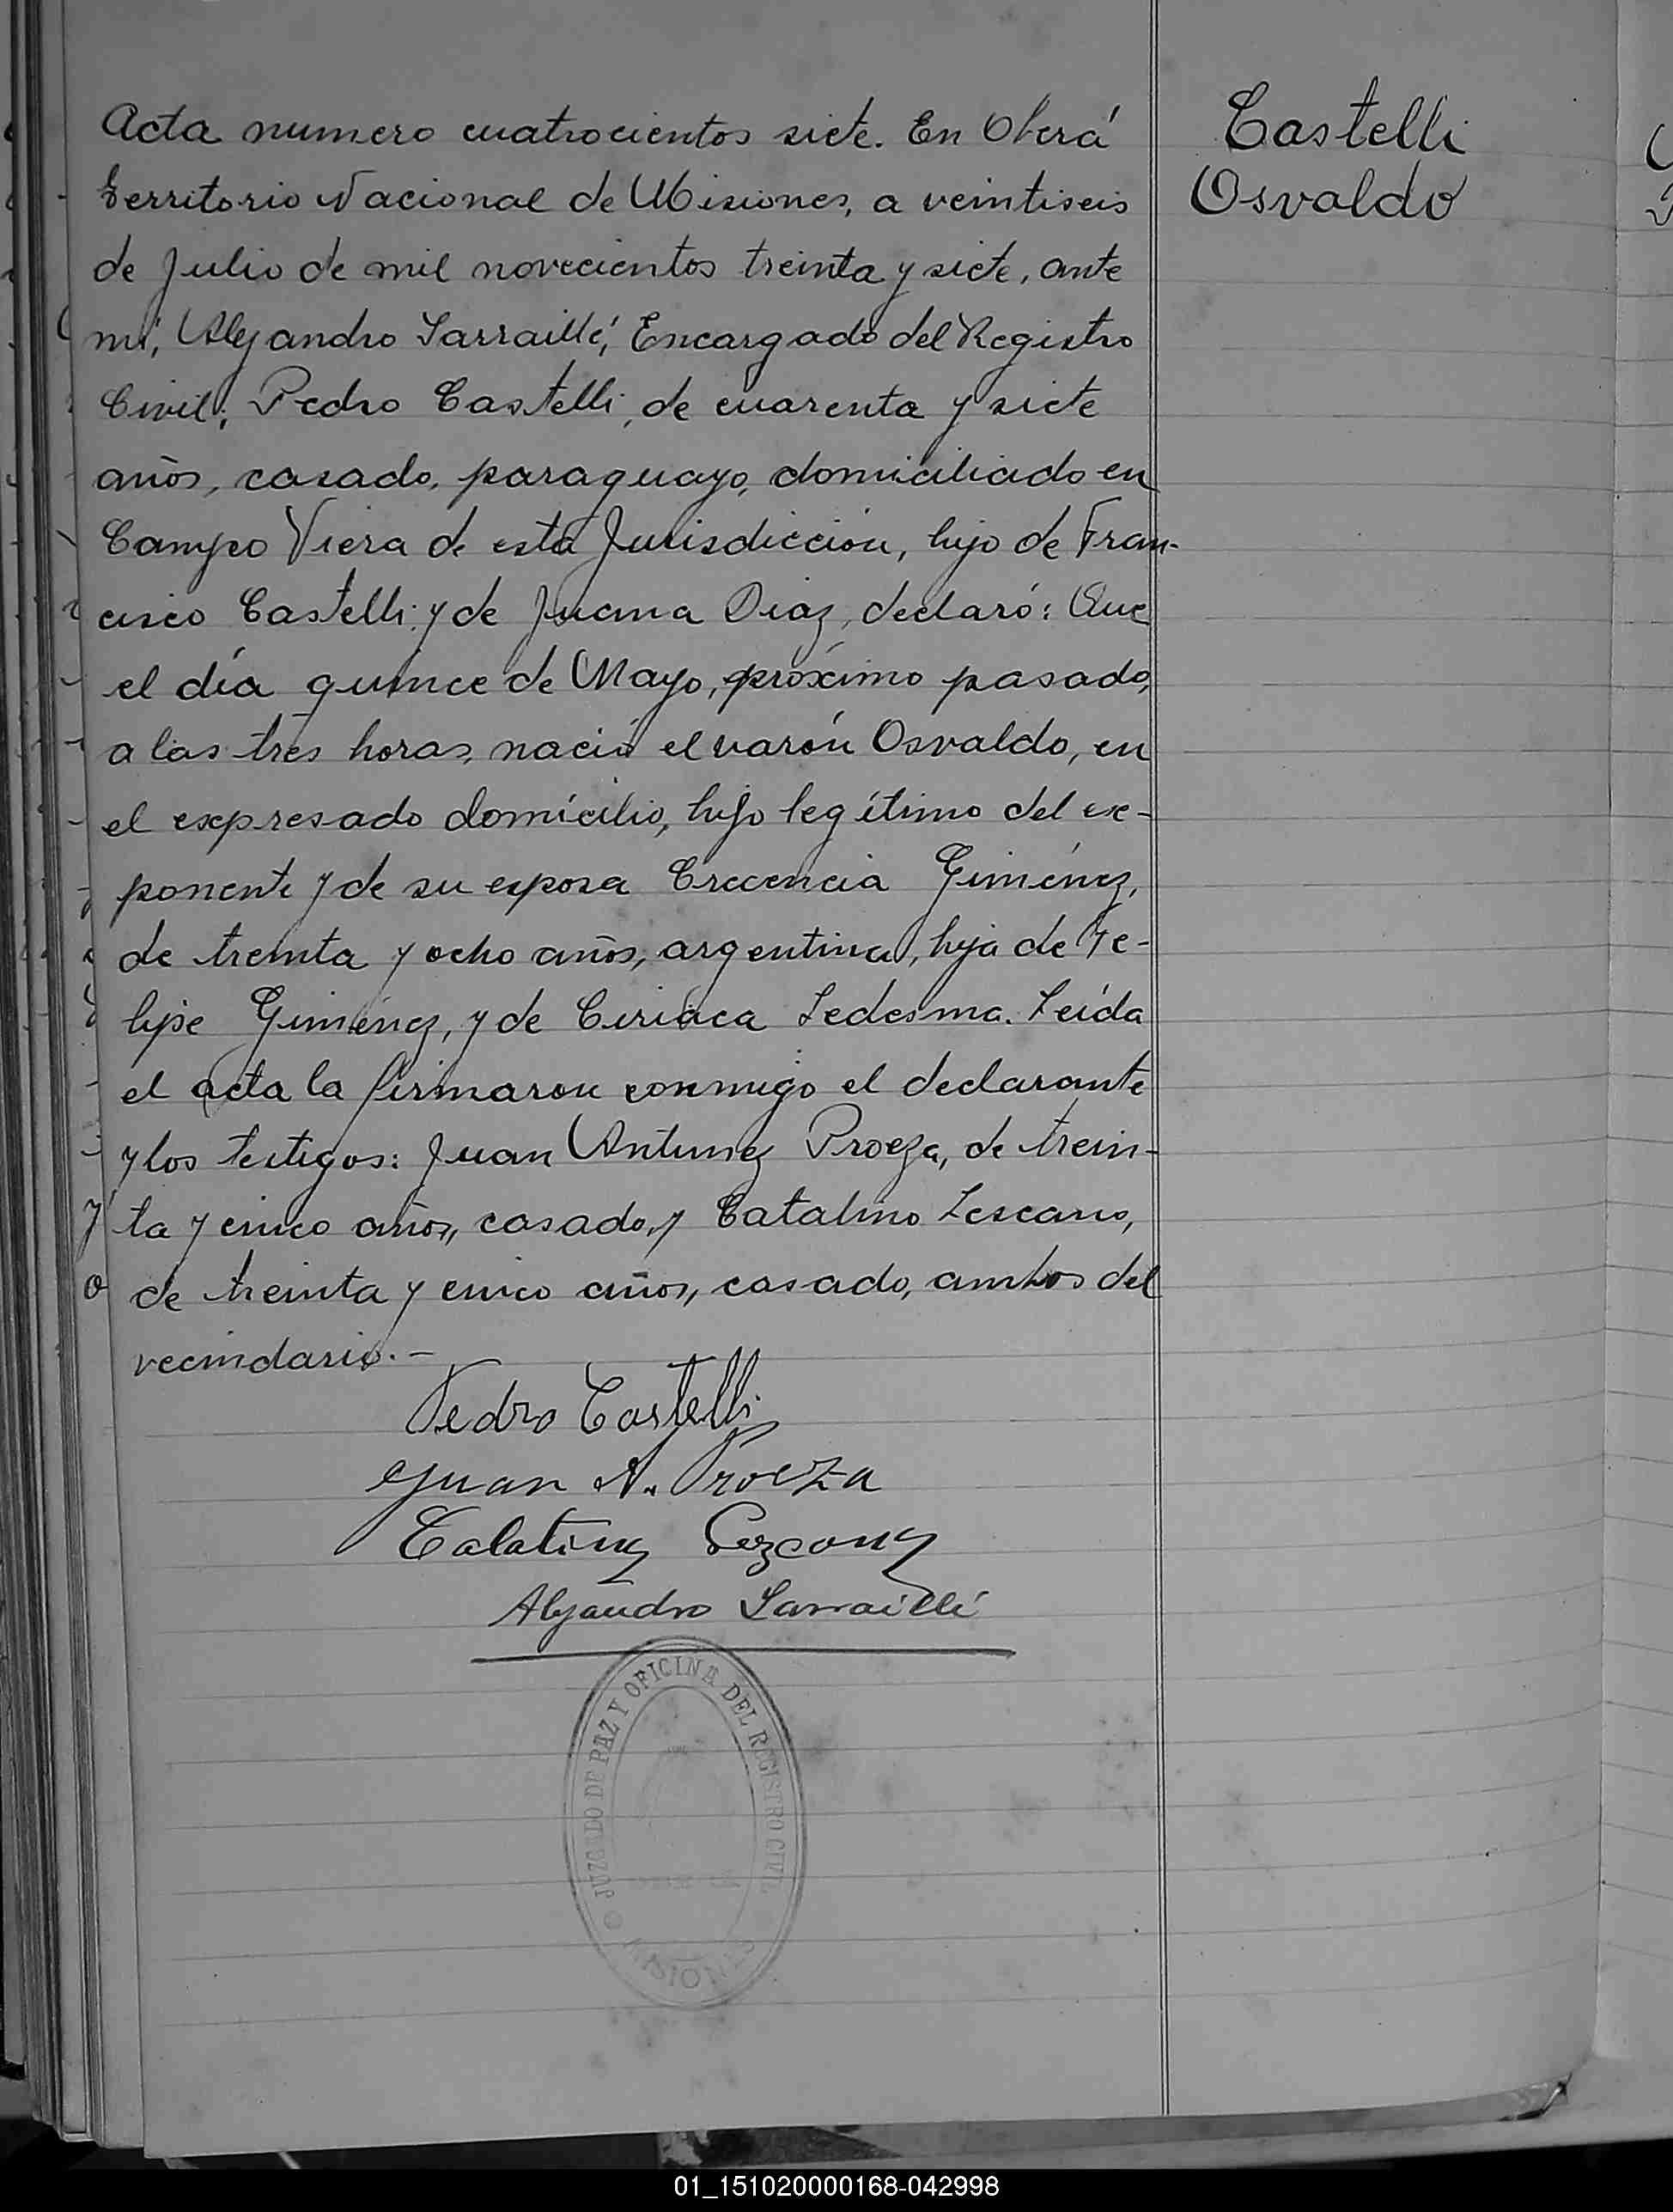 Acta numero cuatrocientos siete. En Oberá
Territorio Nacional de Misiones, a veintiseis
de Julio de mil novecientos treinta y siete, ante
mí, Alejandro Sarraillé, Encargado del Registro
Civil; Pedro Castelli, de cuarenta y siete
años, casado, paraguayo, domiciliado en
Campo Viera de esta Jurisdicción, hijo de Fran-
cisco Castelli y de Juana Diaz, declaró: Que
el día quince de Mayo, próximo pasado,
a las tres horas, nació el varón Osvaldo, en
el expresado domicilio, hijo legítimo del ex-
ponente y de su esposa Crecencia Giménez,
de treinta y ocho años, argentina, hija de Fe-
lipe Giménez, y de Ciriaca Ledesma. Leída
el acta la firmaron conmigo el declarante
y los testigos: Juan Antunez Proeza, de trein-
ta y cinco años, casado, y Catalino Lescano,
de treinta y cinco años, casado, ambos del
vecindario.-
Castelli
Osvaldo
Pedro Castelli
Juan A. Proeza
Alejandro Sarraillé
JUZGADO DE PAZ Y OFICINA DEL REGISTRO CIVIL
MISIONES
01_151020000168-042998